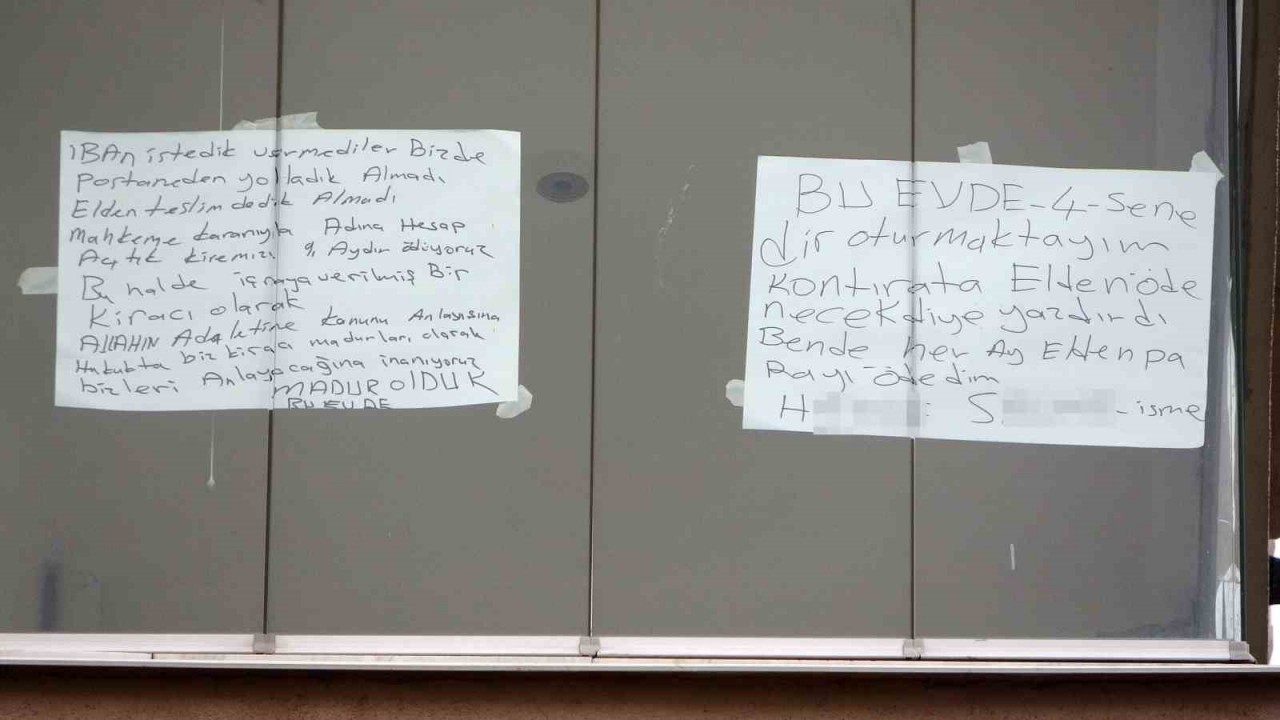 IBAn istedik vermediler Bizde
Postaneden yolladık Almadı
Elden teslim dedik Almadı
Mahkeme kararıyla Adına Hesap
Açtık kiremizi 9 Aydır ödiyoruz
Bu halde icraya verilmiş Bir
kiracı olarak
AllAHIN Adaletine kanunu Anlayısına
Hukukta biz kiracı madurları olarak
bizleri Anlayacağına inanıyoruz
MADUR OLDUK
BU EVDE
BU EVDE-4-Sene
dir oturmaktayım
kontırata Elden öde
necek diye yazdırdı
Bende her Ay Elden pa
Rayı ödedim
H S -isme